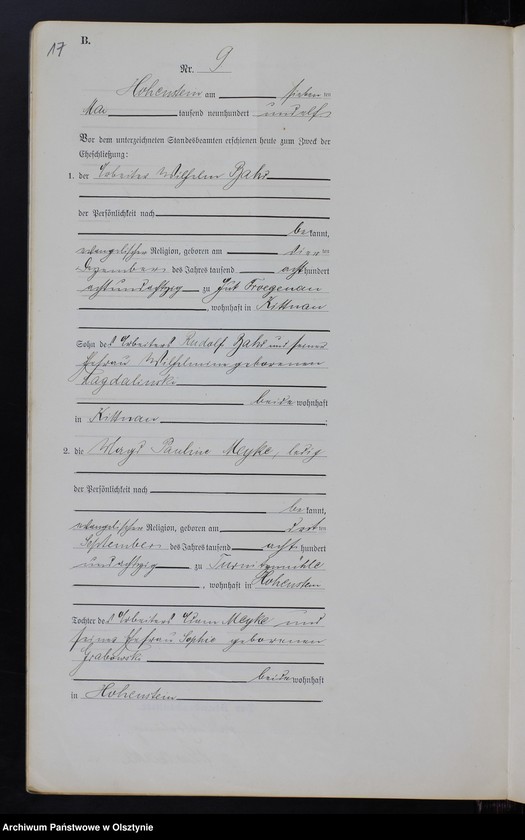 17
B.
Nr. 9
Hohenstein am
Mai tausend neunhundert und elf
Vor dem unterzeichneten Standesbeamten erschienen heute zum Zweck der
Eheschließung:
1. der Arbeiter Wilhelm Bahr
der Persönlichkeit nach
bekannt,
evangelischer Religion, geboren am
Dezember des Jahres tausend achthundert
achtundachtzig zu Gut Froegenau
, wohnhaft in Kittnau
Sohn des Arbeiters Rudolf Bahr und seiner
Ehefrau Wilhelmine geborenen
beide wohnhaft
in Kittnau;
2. die Magd Pauline Meyke, ledig
der Persönlichkeit nach
bekannt,
evangelischer Religion, geboren am
September des Jahres tausend achthundert
zu
, wohnhaft in Hohenstein
Tochter des Arbeiters Meyke und
seiner Ehefrau Sophie geborenen
Grabowski
beide wohnhaft
in Hohenstein
Archiwum Państwowe w Olsztynie